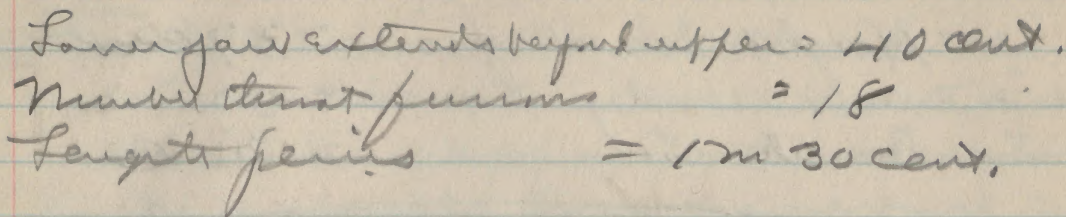 Lower jaw extends beyond upper = 40 cent.
Number throat furrows = 18
Length penis = 1m 30 cent.